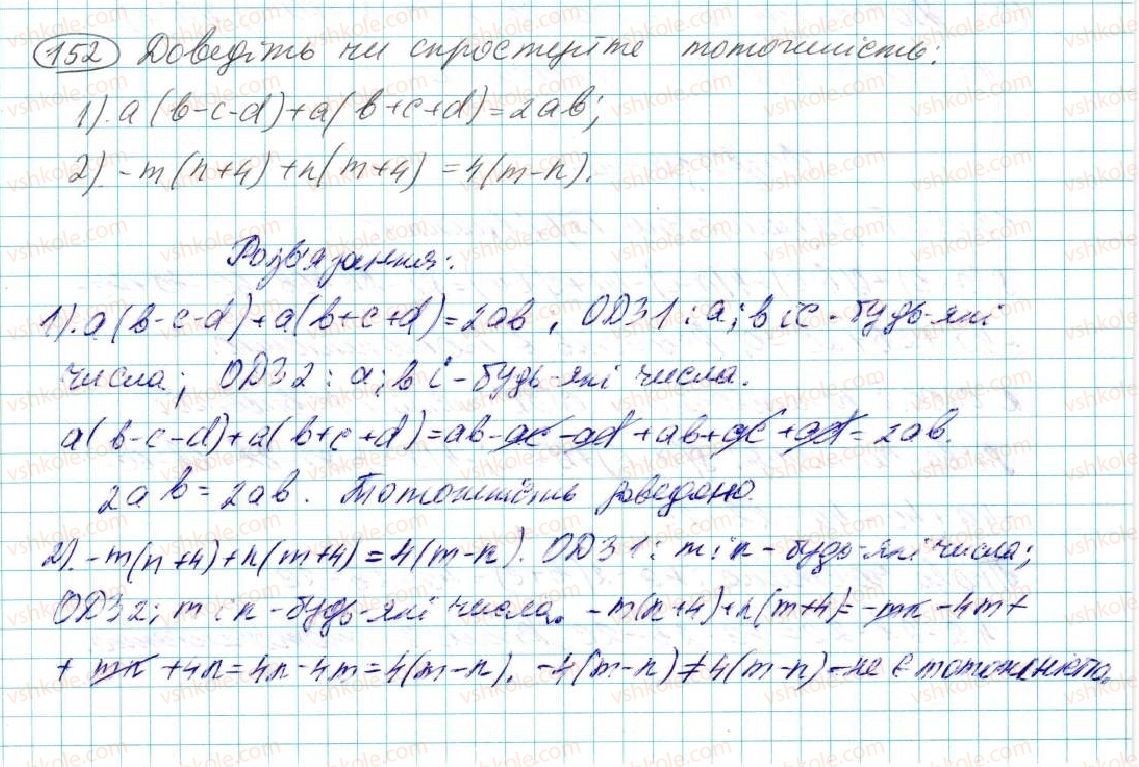 152 Доведіть чи спростуйте тотожність:
1). a(b-c-d)+a(b+c+d)=2ab;
2) -m(n+4)+n(m+4)=4(m-n).
Розв'язання:
1). a(b-c-d)+a(b+c+d)=2ab; ОДЗ1: a; b і c - будь-які
числа; ОДЗ2: a; b і - будь-які числа.
a(b-c-d)+a(b+c+d)=ab-ac-ad+ab+ac+ad=2ab.
2ab=2ab. Тотожність доведено.
2). -m(n+4)+n(m+4)=4(m-n). ОДЗ1: m і n - будь-які числа;
ОДЗ2: m і n - будь-які числа. -m(n+4)+n(m+4)=-mn-4m+
+mn+4n=4n-4m=4(m-n). -4(m-n)≠4(m-n) - не є тотожність.